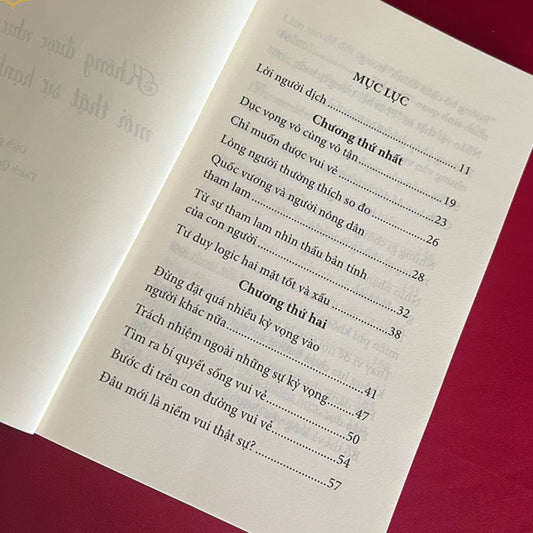 Không được như
mới thật sự hạnh
Thích Qu
MỤC LỤC
Lời người dịch 11
Chương thứ nhất
Dục vọng vô cùng vô tận 19
Chỉ muốn được vui vẻ 23
Lòng người thường thích so đo 26
Quốc vương và người nông dân
tham lam 28
Từ sự tham lam nhìn thấu bản tính
của con người 32
Tư duy logic hai mặt tốt và xấu 38
Chương thứ hai
Đừng đặt quá nhiều kỳ vọng vào
người khác nữa 41
Trách nhiệm ngoài những sự kỳ vọng 47
Tìm ra bí quyết sống vui vẻ 50
Bước đi trên con đường vui vẻ 54
Đâu mới là niềm vui thật sự? 57